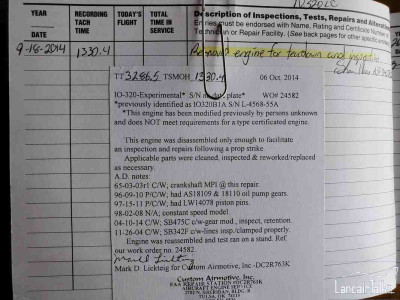 YEAR
RECORDING TACH TIME
TODAY'S FLIGHT
TOTAL TIME IN SERVICE
Description of Inspections, Tests, Repairs and Alterations
Entries must be endorsed with Name, Rating and Certificate Number of
Technician or Repair Facility. (See back pages for other specific entries.)
DATE
9-18-2014 1330.4 Removed engine for teardown and inspection
TT 3286.5 TSMOH 1330.4 06 Oct. 2014
IO-320-Experimental* S/N no data plate* WO# 24582
*previously identified as IO320B1A S/N L-4568-55A
*This engine has been modified previously by persons unknown
and does NOT meet requirements for a type certificated engine.
This engine was disassembled only enough to facilitate
an inspection and repairs following a prop strike
Applicable parts were cleaned, inspected & reworked/replaced
as necessary.
A.D. notes:
65-03-03r1 C/W; crankshaft MPI @ this repair
96-09-10 P/C/W; had AS18109 & 18110 oil pump gears.
97-15-11 P/C/W; had LW14078 piston pins.
98-02-08 N/A; constant speed model
04-10-14 C/W; SB475C c/w-gear mod., inspect, retention.
11-26-04 C/W; SB342F c/w-lines insp./clamped properly.
Engine was reassembled and test ran on a stand. Ref.
our work order no. 24582.
Mark D. Lickteig for Custom Airmotive, Inc -DC2R763K
Custom Airmotive, Inc.
FAA REPAIR STATION #DC2R763K
AIRCRAFT ENGINE SERVICE
TULSA, OK
LancairTalk